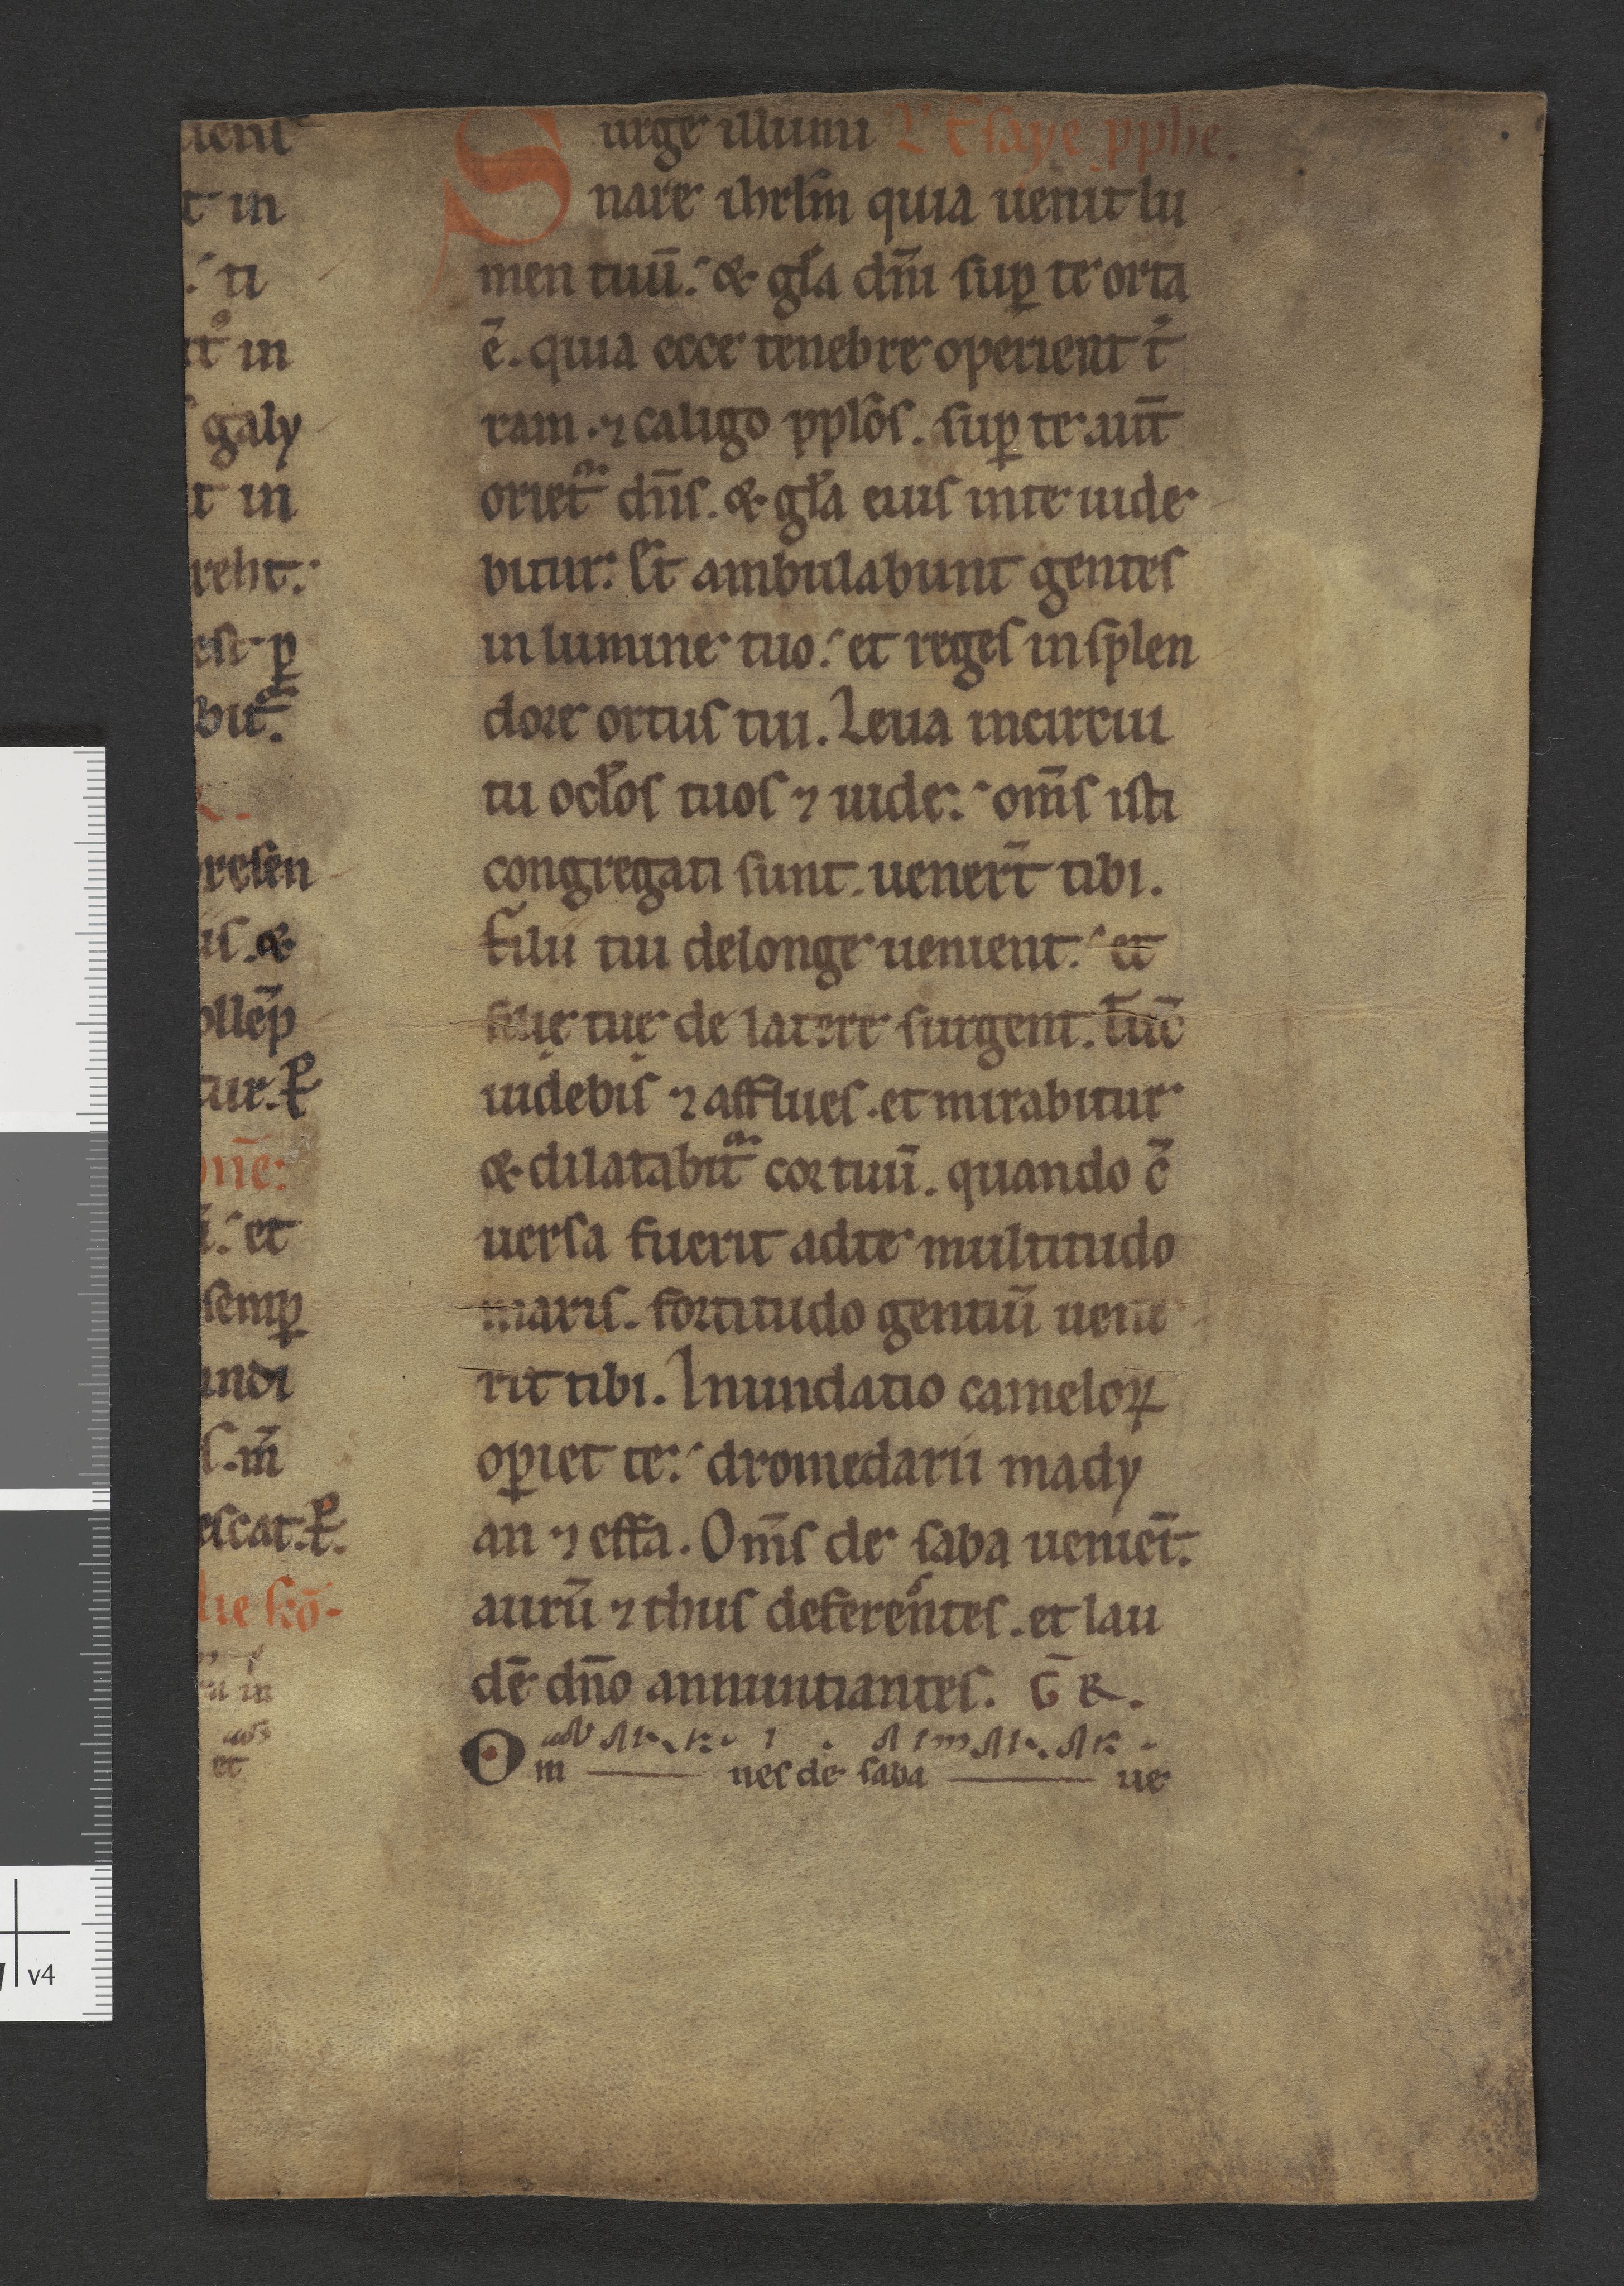 uenit
t in
: ti
it in
galy
it in
reht:
est p̱
bit᷑.
R.
presen
us. &
ollēp
tur. P̱
onē:
ū: et
semp̱
undi
s. m̄
escat. P̱.
scō.
in
et
Surge illumi L̄ Esaye pphe.
nare ihrl̄m quia uenit lu
men tuū: & gl̄a dn̄i sup̱ te orta
ē. quia ecce tenebre operient t̄
ram. ⁊ caligo ppl̄os. sup̱ te aut̄
oriet᷑ dn̄s. & gl̄a eius inte uide
bitur: Et ambulabunt gentes
in lumine tuo: et reges in splen
dore ortus tui. Leua incircui
tu ocl̄os tuos ⁊ uide: om̄s isti
congregati sunt. uenert̄ tibi.
Filii tui delonge uenient: et
filię tuę de latere surgent. Tūc
uidebis ⁊ afflues. et mirabitur
& dilatabit᷑ cor tuū. quando c̄
uersa fuerit adte multitudo
maris. fortitudo gentiū uene
rit tibi. Inundatio cameloꝝ
op̱iet te: dromedarii mady
an ⁊ effa. Om̄s de saba ueniet̄.
aurū ⁊ thus deferentes. et lau
dē dn̄o annuntiantes. Ḡ R.
Om nes de saba ue